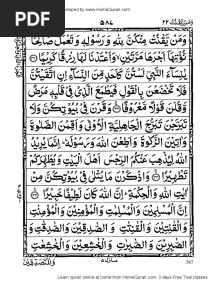 PDF
eloped by www.HomeQuran.com
٥٨٧
٢٢
وَمَنْ يَّقْنُتْ مِنْكُنَّ لِلّٰهِ وَرَسُوْلِهٖ وَتَعْمَلْ صَالِحًا
نُّؤْتِهَآ اَجْرَهَا مَرَّتَيْنِ وَاَعْتَدْنَا لَهَا رِزْقًا كَرِيْمًا
يٰنِسَآءَ النَّبِيِّ لَسْتُنَّ كَاَحَدٍ مِّنَ النِّسَآءِ اِنِ اتَّقَيْتُنَّ
فَلَا تَخْضَعْنَ بِالْقَوْلِ فَيَطْمَعَ الَّذِيْ فِيْ قَلْبِهٖ مَرَضٌ
وَّقُلْنَ قَوْلًا مَّعْرُوْفًا وَقَرْنَ فِيْ بُيُوْتِكُنَّ وَلَا
تَبَرَّجْنَ تَبَرُّجَ الْجَاهِلِيَّةِ الْاُوْلٰى وَاَقِمْنَ الصَّلٰوةَ
وَاٰتِيْنَ الزَّكٰوةَ وَاَطِعْنَ اللّٰهَ وَرَسُوْلَهٗ اِنَّمَا يُرِيْدُ
اللّٰهُ لِيُذْهِبَ عَنْكُمُ الرِّجْسَ اَهْلَ الْبَيْتِ وَيُطَهِّرَكُمْ
تَطْهِيْرًا وَاذْكُرْنَ مَا يُتْلٰى فِيْ بُيُوْتِكُنَّ مِنْ
اٰيٰتِ اللّٰهِ وَالْحِكْمَةِ اِنَّ اللّٰهَ كَانَ لَطِيْفًا خَبِيْرًا
اِنَّ الْمُسْلِمِيْنَ وَالْمُسْلِمٰتِ وَالْمُؤْمِنِيْنَ وَالْمُؤْمِنٰتِ
وَالْقٰنِتِيْنَ وَالْقٰنِتٰتِ وَالصّٰدِقِيْنَ وَالصّٰدِقٰتِ وَ
الصّٰبِرِيْنَ وَالصّٰبِرٰتِ وَالْخٰشِعِيْنَ وَالْخٰشِعٰتِ
587
Learn quran online at home from HomeQuran.com. 3 days Free Trial classes